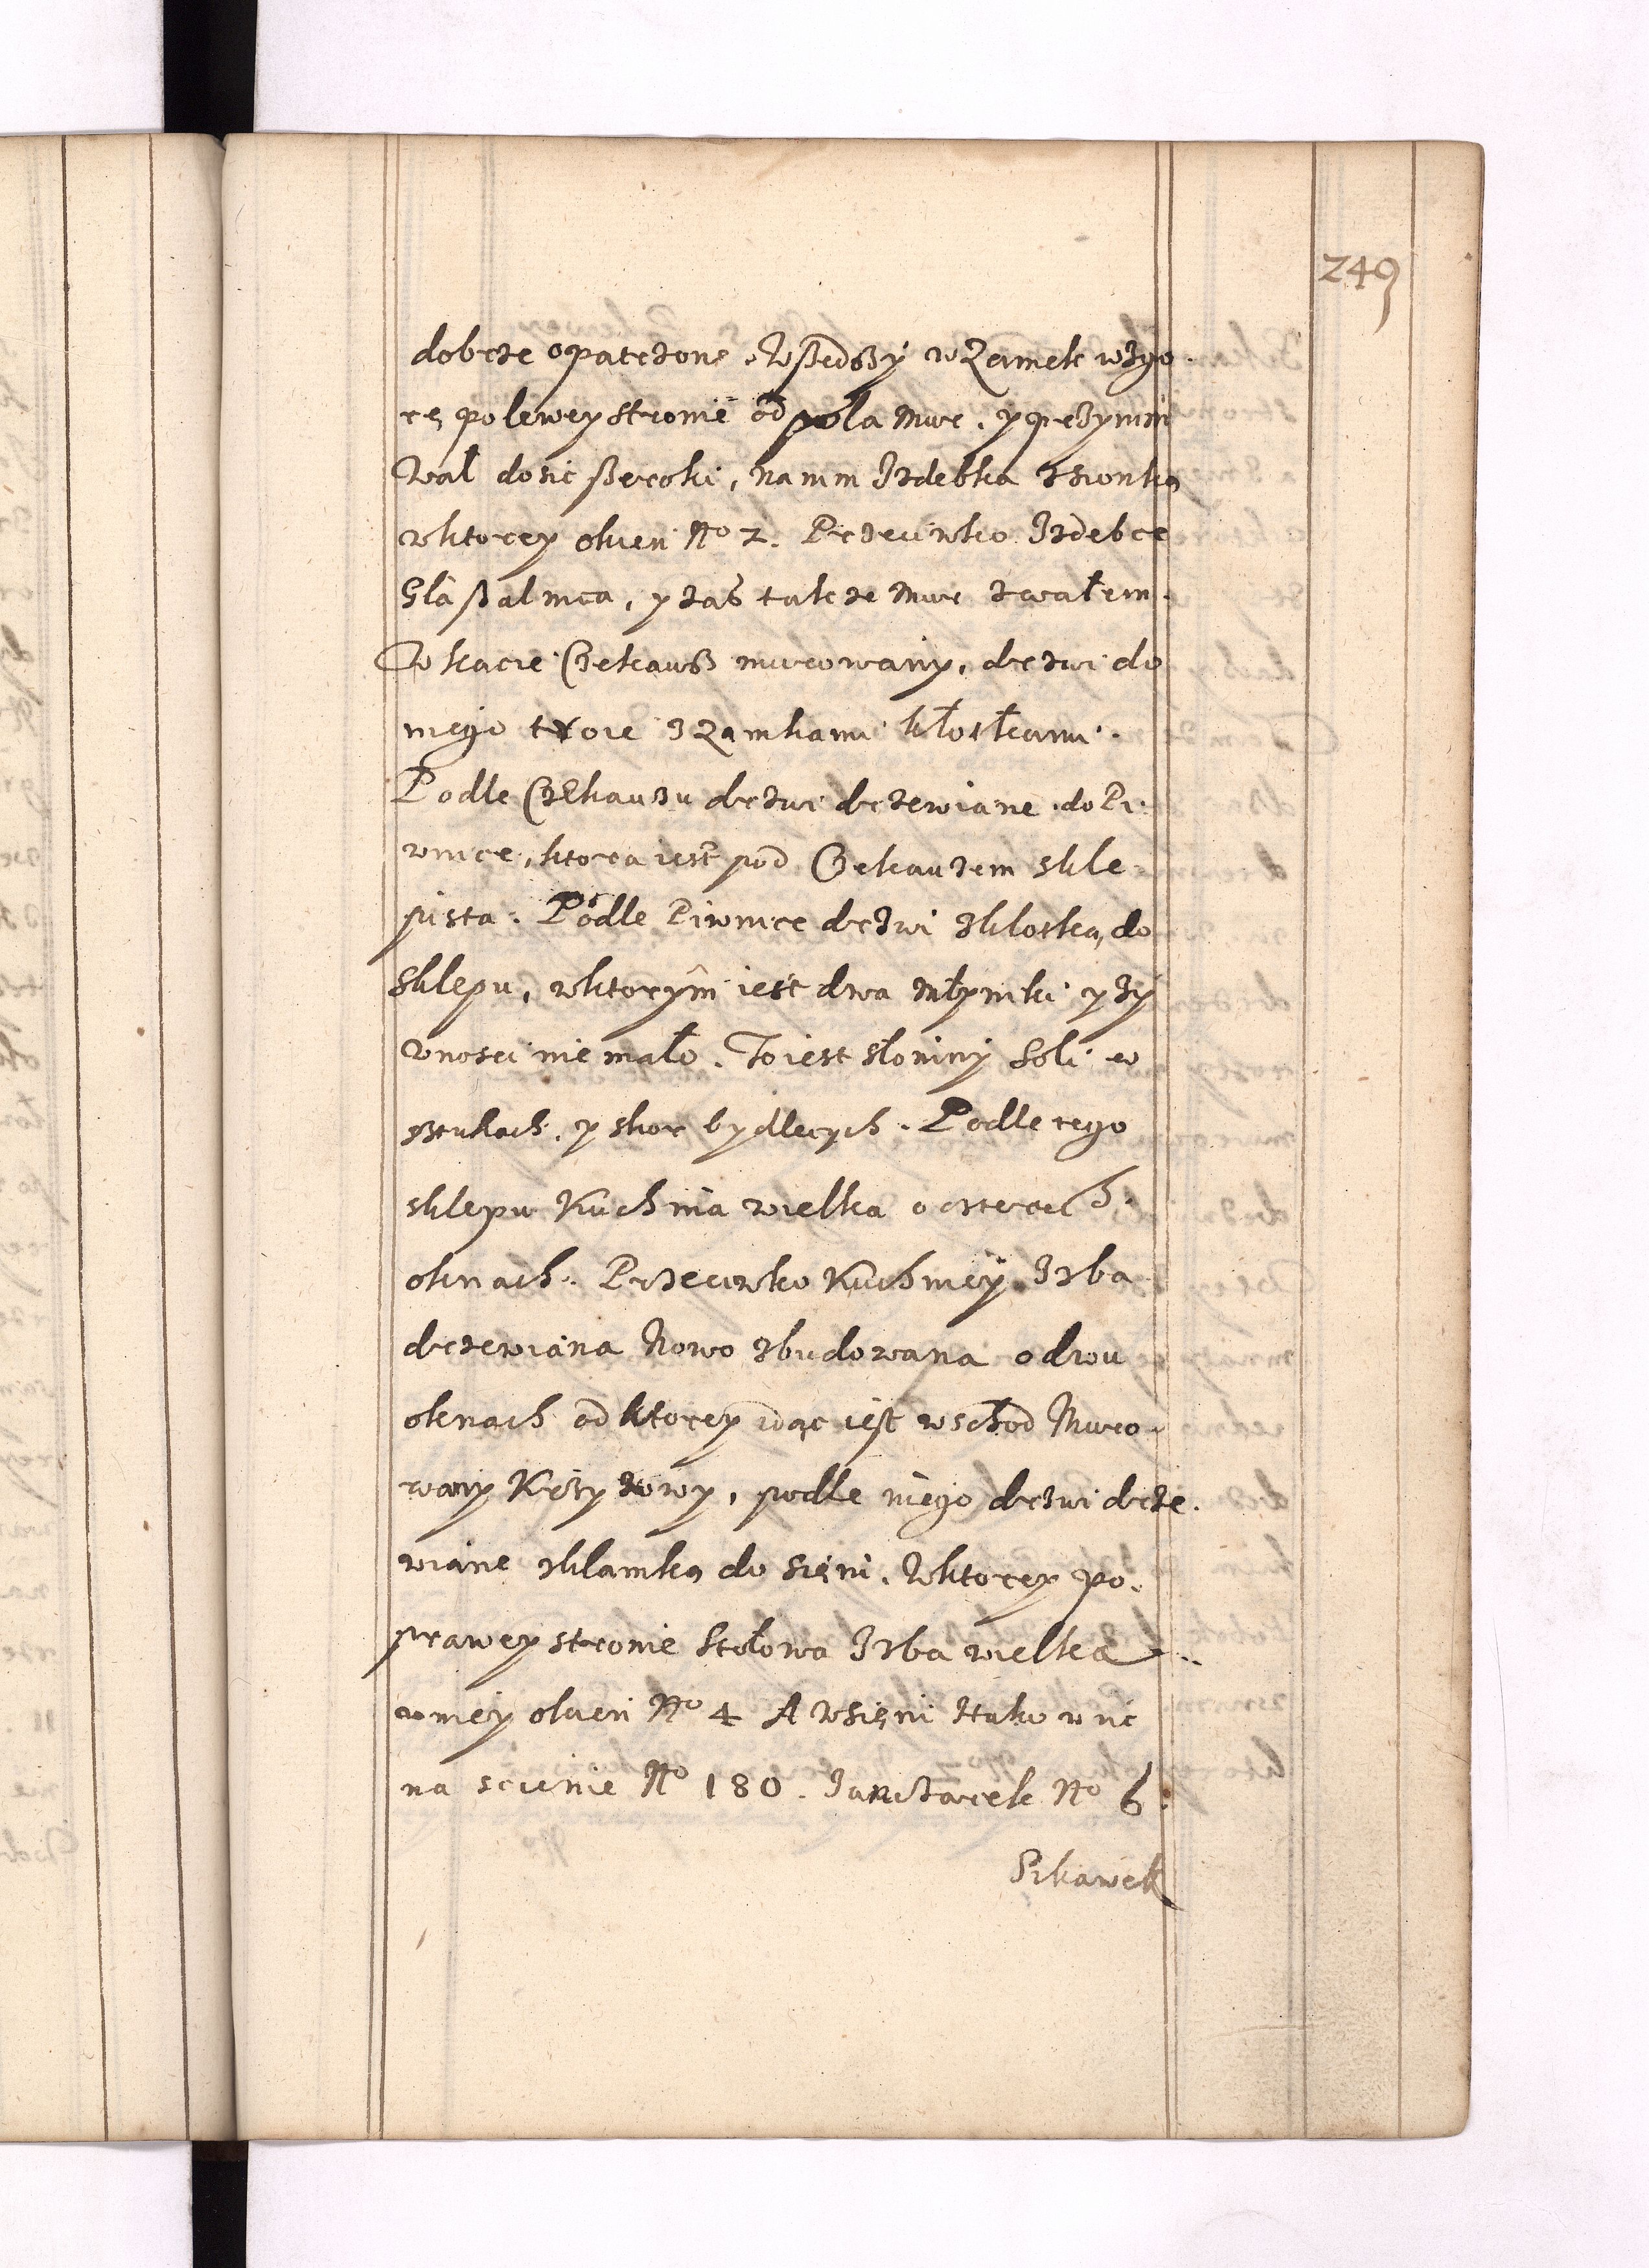 249
dobrze opatrzone. Wszedszy w Zamek wzgo-
rę, po lewey stronie od pola mur, y przy nim
wał dosic szeroki, na nim Izdebka z sionką
w ktorey okien No 2. Przeciwko Izdebce
y zas takze mur z wałem.
W kącie Czekausz murowany, drzwi do
niego troie z Zamkami kłotkami.
Podle Czekauzu drzwi drzewiane do Pi-
wnice, ktora iest pod Czekauzem skle-
pista. Podle Piwnice drzwi z klotką do
sklepu, w ktorym iest dwa młynki y zy-
wnosci nie mało. To iest słoniny soli w
sztukach, y skor bydlęcych. Podle tego
sklepu Kuchnia wielka o czterech
oknach. Przeciwko Kuchniey Izba
drzewiana Nowo zbudowana o dwu
oknach od ktorey idąc iest wschod Muro-
wany Krzyzowy, podle niego drzwi drze-
wiane z klamką do sieni. W ktorey po
prawey stronie stołowa Izba wielka
w niey okien No 4 A w sieni Hakownic
na scienie No 180. Janczarek No 6.
Pikawek